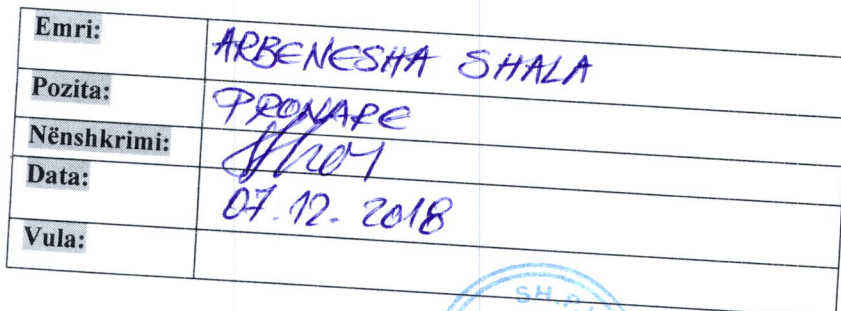 Emri: ARBENESHA SHALA
Pozita: PRONARE
Nënshkrimi:
Data: 07.12.2018
Vula:
SH.P.K